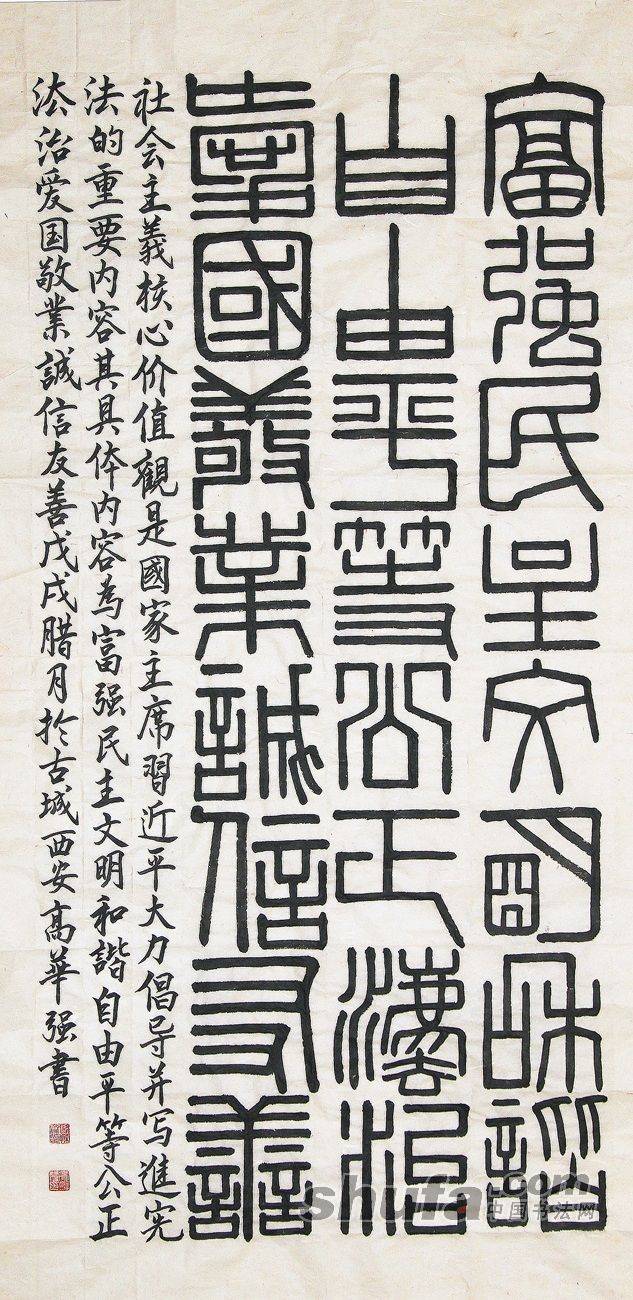 富強民主文明和諧
自由平等公正灋治
愛國敬業誠信友善
社会主義核心价值觀是國家主席習近平大力倡导并写進宪
法的重要内容其具体内容為富强民主文明和諧自由平等公正
法治爱国敬業誠信友善戊戌腊月於古城西安高華强書
shufa.com
中国书法网